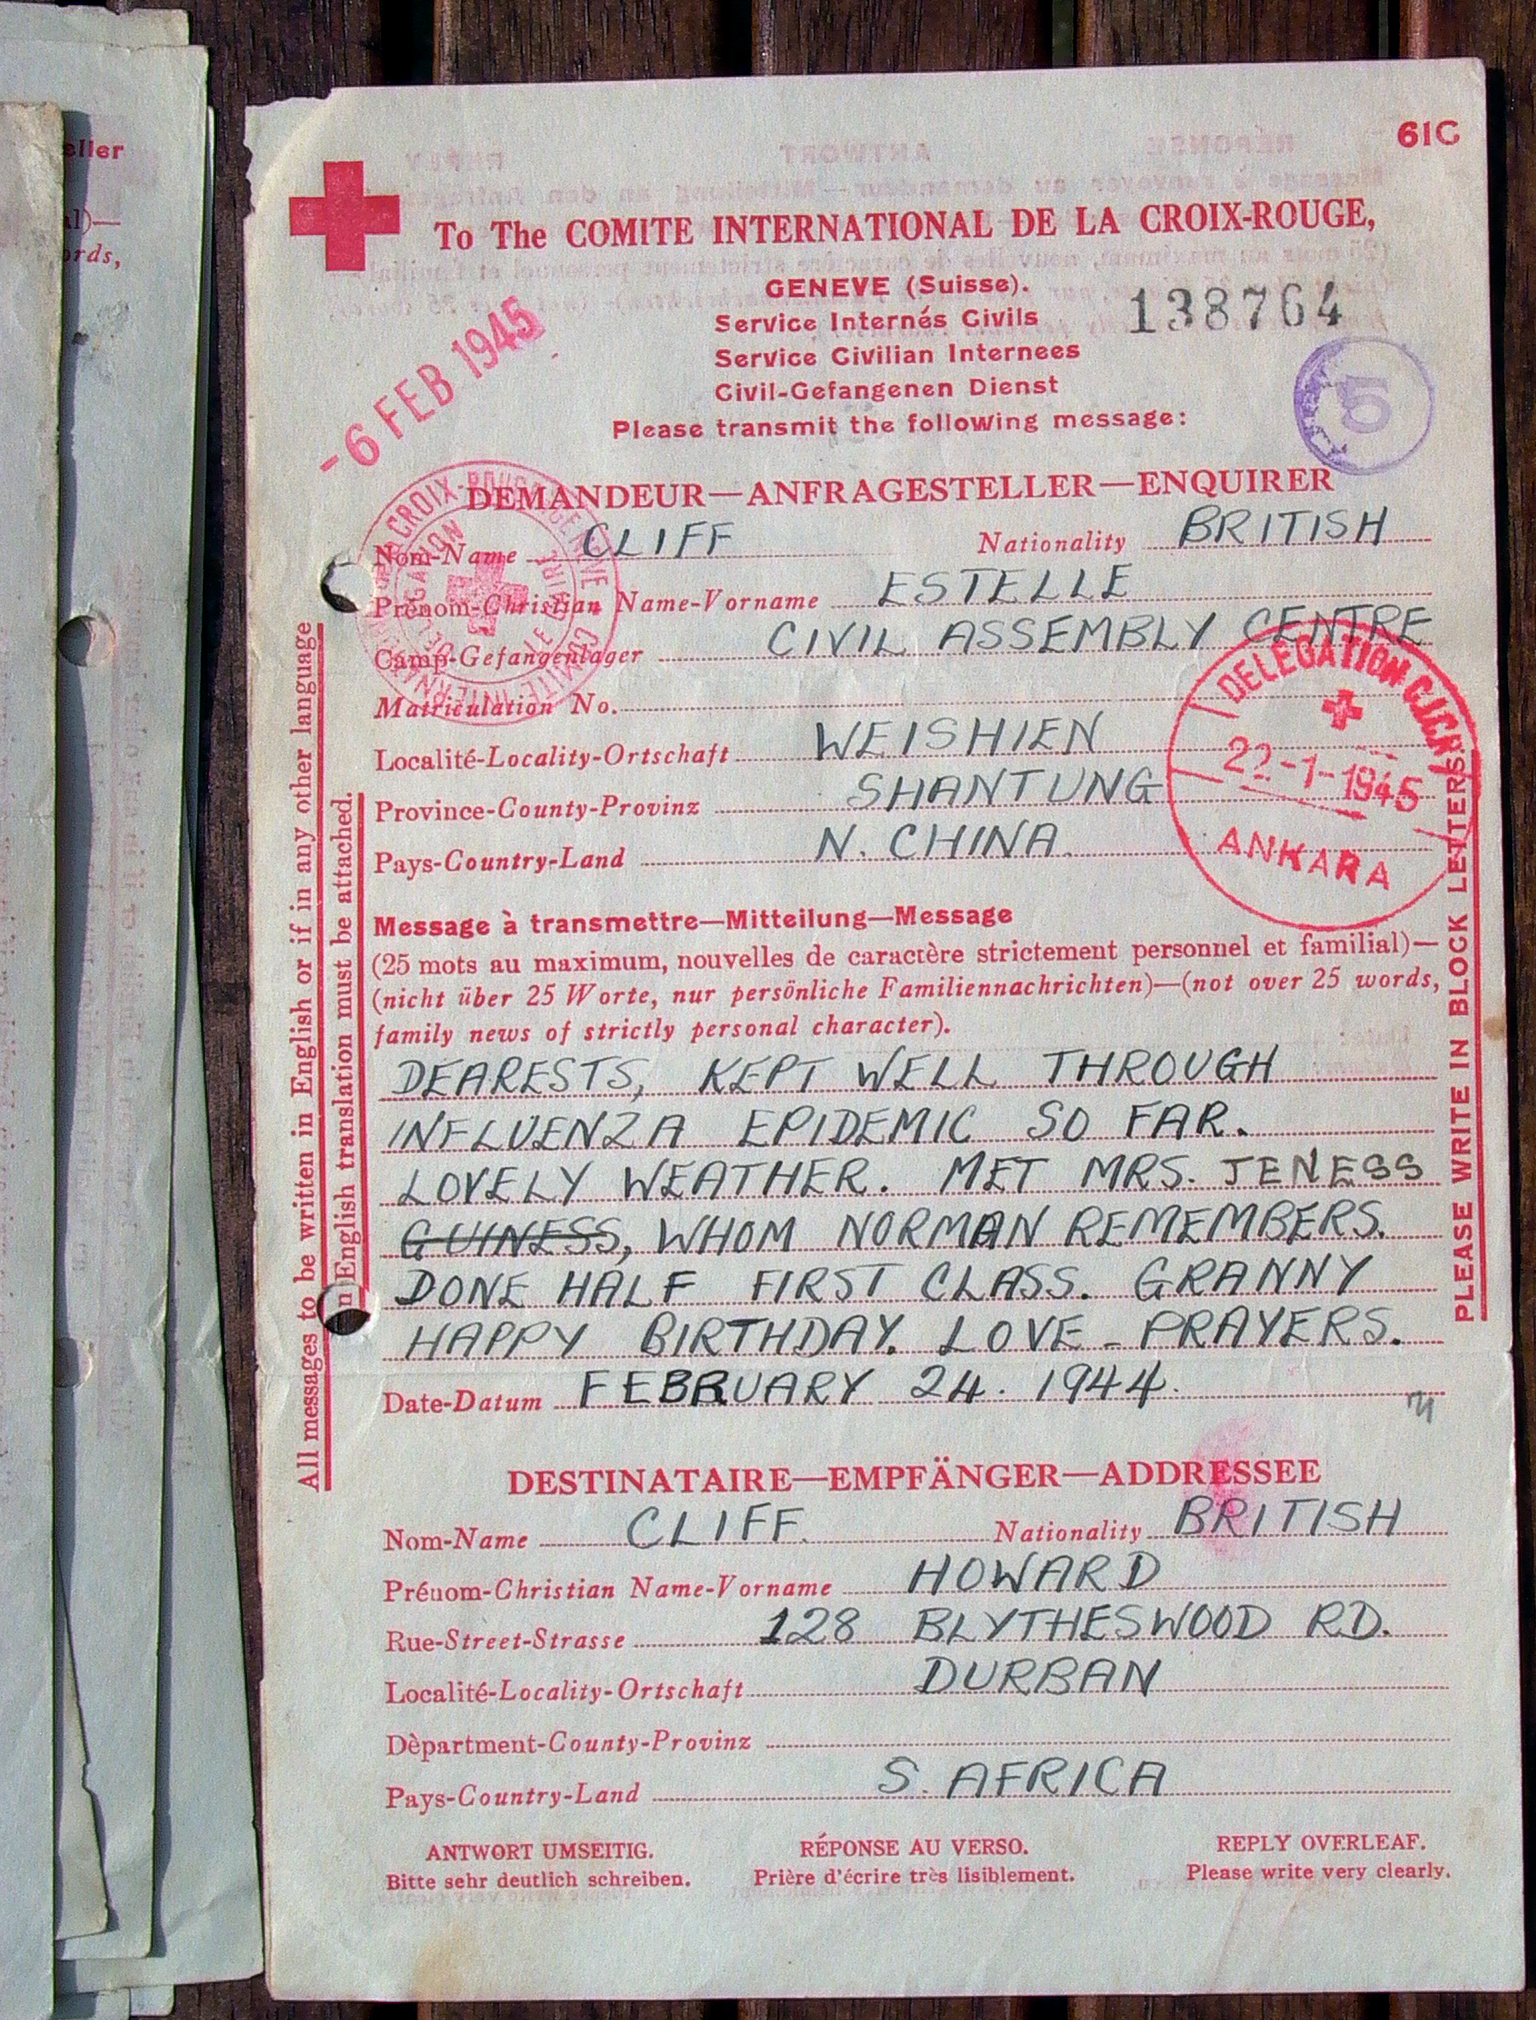 eller
ords,
61C
To The COMITE INTERNATIONAL DE LA CROIX-ROUGE,
GENEVE (Suisse).
Service Internés Civils
138764
Service Civilian Internees
Civil-Gefangenen Dienst
Please transmit the following message:
-6 FEB 1945
5
DEMANDEUR—ANFRAGESTELLER—ENQUIRER
Nom-Name CLIFF Nationality BRITISH
Prénom-Christian Name-Vorname ESTELLE
Camp-Gefangenlager CIVIL ASSEMBLY CENTRE
Matriculation No.
Localité-Locality-Ortschaft WEISHIEN
Province-County-Provinz SHANTUNG
Pays-Country-Land N. CHINA.
DELEGATION
22-1-1945
ANKARA
Message à transmettre—Mitteilung—Message
(25 mots au maximum, nouvelles de caractère strictement personnel et familial)—
(nicht über 25 Worte, nur persönliche Familiennachrichten)—(not over 25 words,
family news of strictly personal character).
DEARESTS, KEPT WELL THROUGH
INFLUENZA EPIDEMIC SO FAR.
LOVELY WEATHER. MET MRS. JENESS
GUINESS, WHOM NORMAN REMEMBERS.
DONE HALF FIRST CLASS. GRANNY
HAPPY BIRTHDAY. LOVE - PRAYERS.
Date-Datum FEBRUARY 24. 1944.
DESTINATAIRE—EMPFÄNGER—ADDRESSEE
Nom-Name CLIFF. Nationality BRITISH
Prénom-Christian Name-Vorname HOWARD
Rue-Street-Strasse 128 BLYTHESWOOD RD.
Localité-Locality-Ortschaft DURBAN
Dèpartment-County-Provinz
Pays-Country-Land S. AFRICA
ANTWORT UMSEITIG. RÉPONSE AU VERSO. REPLY OVERLEAF.
Bitte sehr deutlich schreiben. Prière d'écrire très lisiblement. Please write very clearly.
All messages to be written in English or if in any other language
an English translation must be attached.
PLEASE WRITE IN BLOCK LETTERS.